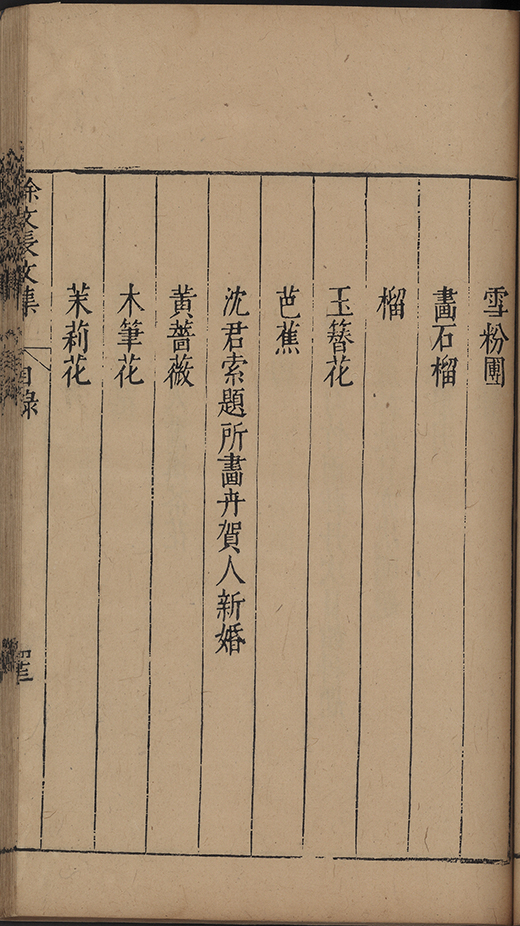 雪粉團
畫石榴
榴
玉簪花
芭蕉
沈君索題所畫卉賀人新婚
黃薔薇
木筆花
茉莉花
徐文長文集
目錄